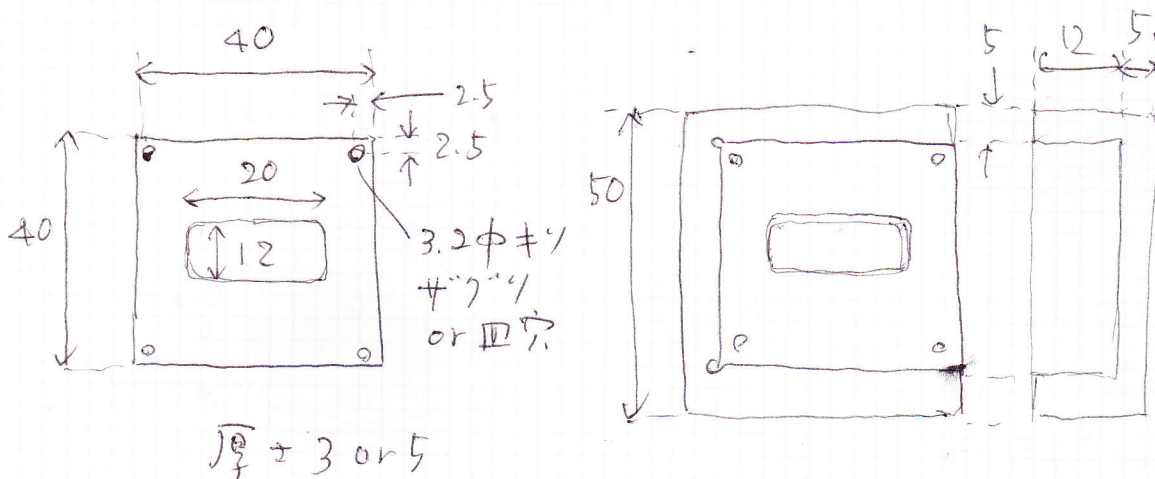 40
2.5
2.5
20
40
12
3.2φキリ
ザグリ
or 皿穴
厚さ 3 or 5
5
12
5
50